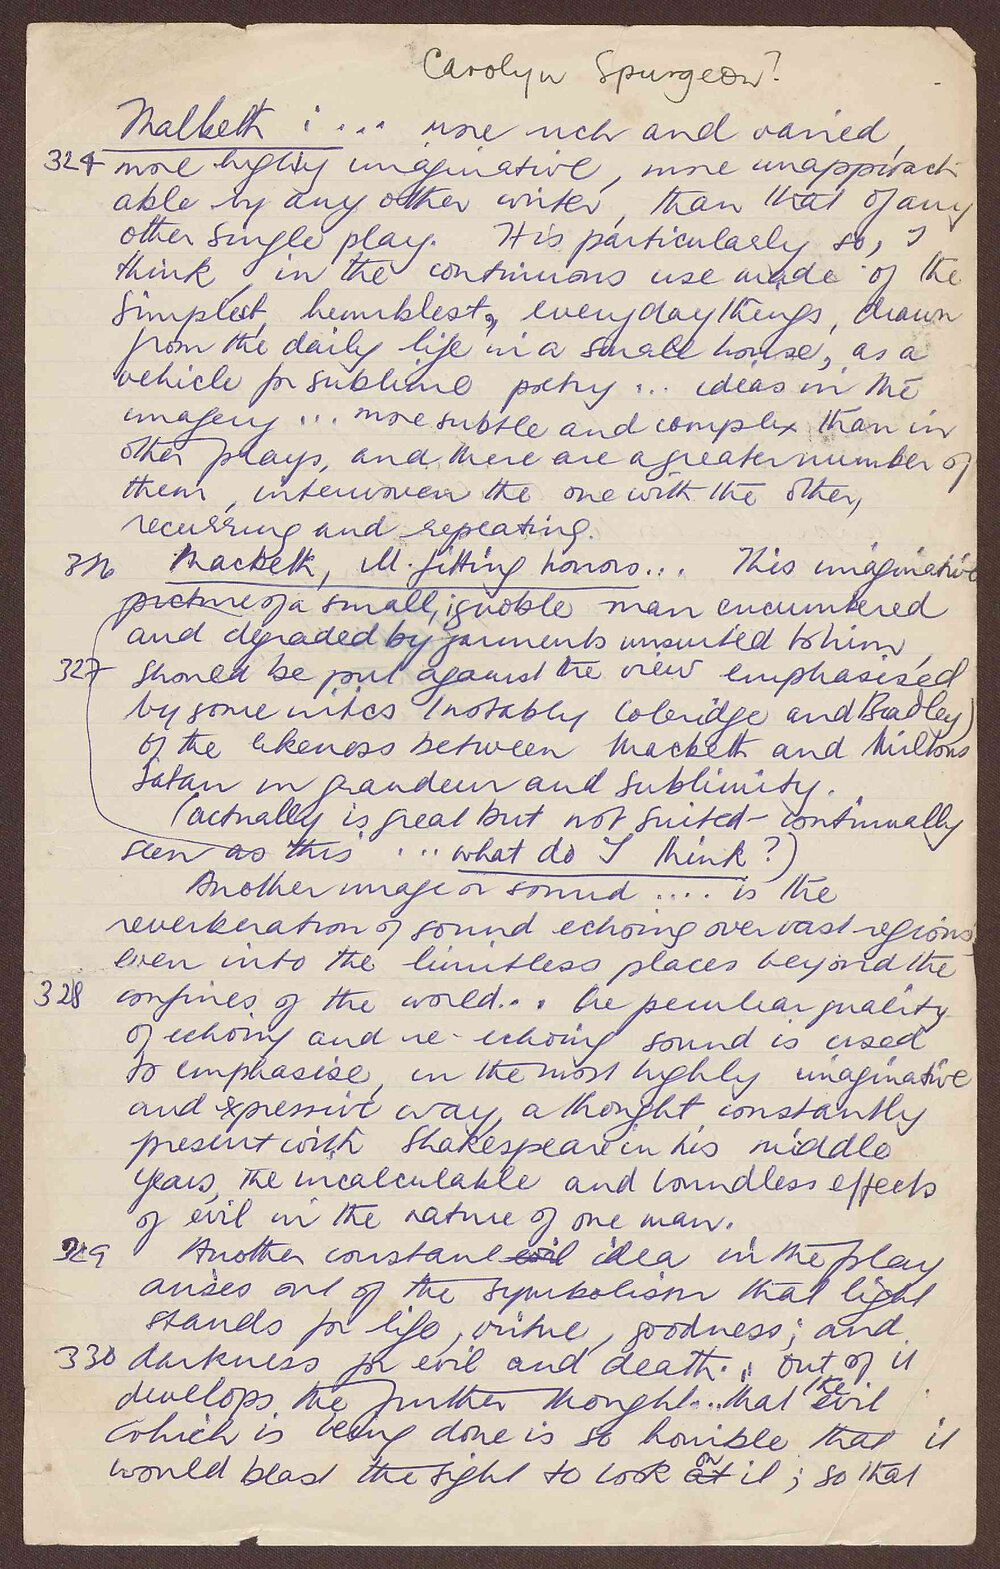 Carolyn Spurgeon?
Macbeth : .... more rich and varied,
324 more highly imaginative, more unapproach
able by any other writer, than that of any
other single play. It is particularly so, I
think, in the continuous use made of the
simplest, humblest, everyday things, drawn
from the daily life in a small house, as a
vehicle for sublime poetry ... ideas in the
imagery ... more subtle and complex than in
other plays, and there are a greater number of
them, interwoven the one with the other,
recurring and repeating.
326 Macbeth, Ill-fitting honors... This imaginative
picture of a small, ignoble man encumbered
and degraded by garments unsuited to him,
327 should be put against the view emphasised
by some critics (notably Coleridge and Bradley)
of the likeness between Macbeth and Miltons
Satan in grandeur and sublimity.
(actually is great but not suited - continually
seen as this ... what do I think?)
Another image or sound .... is the
reverberation of sound echoing over vast regions
even into the limitless places beyond the
328 confines of the world... The peculiar quality
of echoing and re-echoing sound is used
to emphasise, in the most highly imaginative
and expressive way, a thought constantly
present with Shakespeare in his middle
years, the incalculable and boundless effects
of evil in the nature of one man.
329 Another constant evil idea in the play
arises out of the symbolism that light
stands for life, virtue, goodness; and
330 darkness for evil and death... out of it
develops the further thought... that the evil
which is being done is so horrible that it
would blast the sight to look at on it; so that